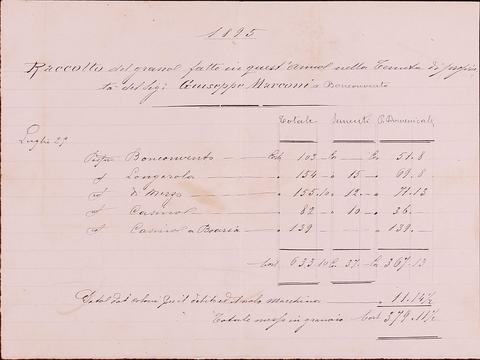 1895.
Raccolto del grano fatto in quest'Anno nella Tenuta di proprie-
tà del Sigr Giuseppe Marconi a Bonconvento
Totale Sementi P. Domenicale
Luglio 29 Bonconvento 103 51.8
d° Longarola 154 15 69.8
d° di Mezzo 155.10 12. 71.13
d° Casino 82 10 36.
d° Casino a Boaria 139 139.
633.10 37. 367.13
11.14½
Totale messo in granaio 379.11½